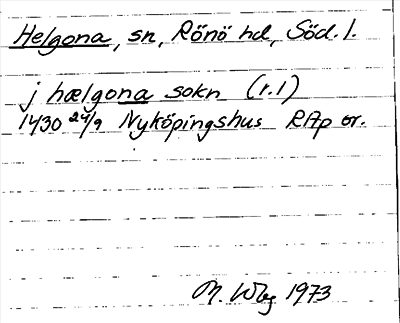 Helgona, sn, Rönö hd, Söd. l.
j hælgona sokn (r.1)
1430 24/9 Nyköpingshus RAp or.
M. Wbg 1973